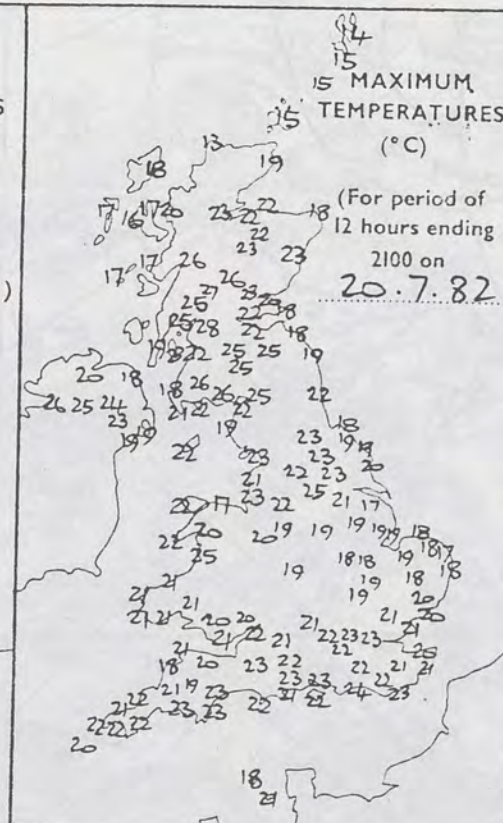 14
15
15 MAXIMUM
TEMPERATURES
(°C)
(For period of
12 hours ending
2100 on
20.7.82
S
)
15
13
19
18
17 16 17 20
23 22 22 18
22
23 23
17
17 26
26
27 23 20
25 22 18
25 28 22 18
19 22 25 25 19
25
20 18
18 26 26 25 22
26 25 24
23
21 22 22
19 19
19
18
22
23
23 19 19
23 20
21 22 23
23 25
22 17 22 21 17
22 20 20 19 19 19 19 19 18
25 18 17
19 18 18 19 18
19 18
21 19 20
21 21 21 20
21 21 20 20 21
21 22 21 22 23 23
22 20
21 18 20 23 22 22 21 21
23 23 22
21 19 23 21 22 24 23
22 23 23 22
21
22 22 22
20
18
21